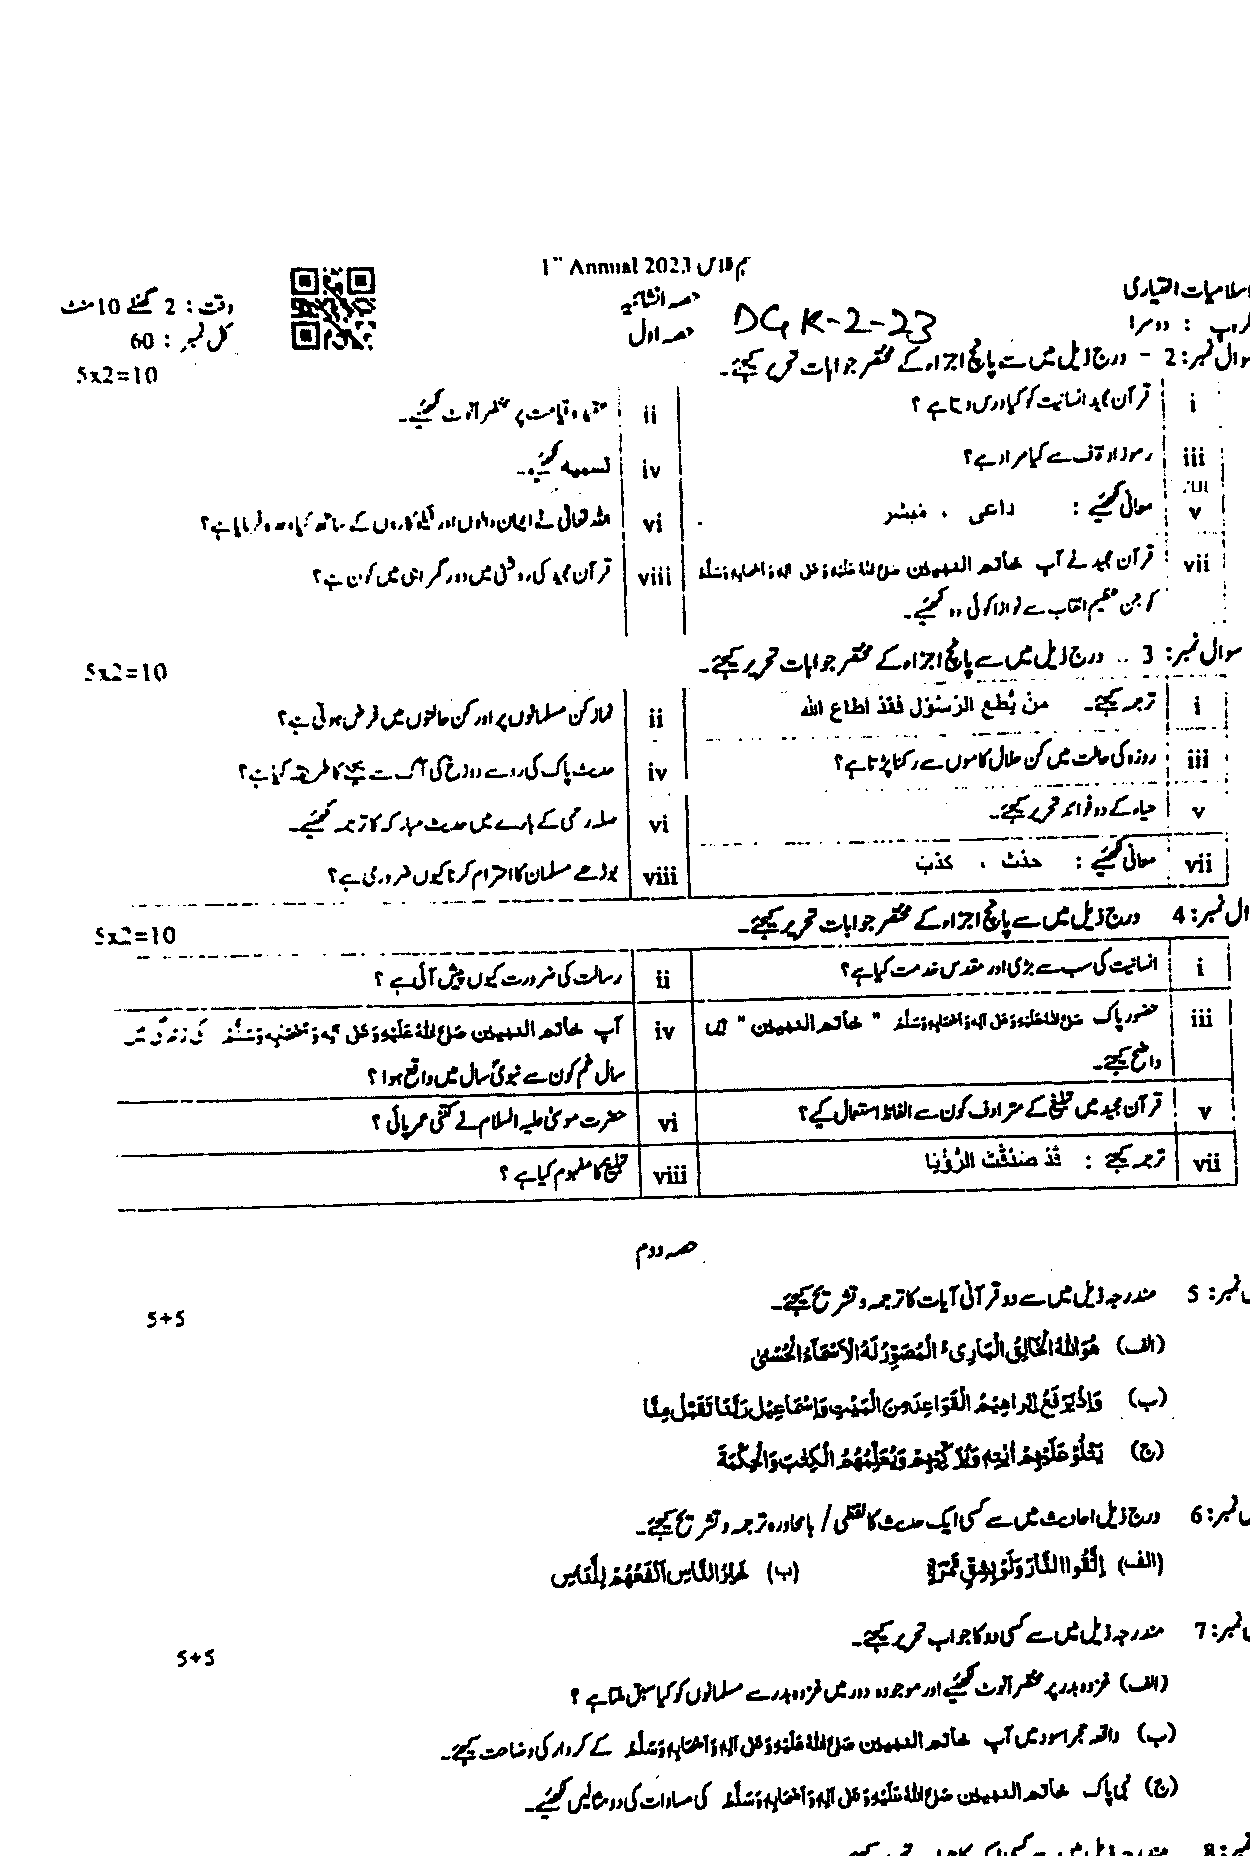 1st Annual 2023 نہم کلاس
اسلامیات اختیاری
حصہ انشائیہ
وقت : 2 گھنٹے 10 منٹ
گروپ : دوسرا
DGK-2-23
حصہ اول
کل نمبر : 60
سوال نمبر: 2 - درج ذیل میں سے پانچ اجزاء کے مختصر جوابات تحریر کیجئے۔
5x2=10
i قرآن مجید انسانیت کو کیا درس دیتا ہے ؟
ii عقیدہ قیامت پر مختصر نوٹ لکھئے۔
iii رموز اوقاف سے کیا مراد ہے؟
iv تسمیہ لکھیے۔
v معانی لکھئے : داعی ، مبشر
vi اللہ تعالٰی نے ایمان والوں اور نیکوکاروں کے ساتھ کیا وعدہ فرمایا ہے؟
vii قرآن مجید نے آپ خاتم النبیین صلی اللہ علیہ وعلی آلہ واصحابہ وسلم
کو جن عظیم القاب سے نوازا کوئی دو لکھئے۔
viii قرآن مجید کی روشنی میں دور گمراہی میں کون ہے؟
سوال نمبر: 3 .. درج ذیل میں سے پانچ اجزاء کے مختصر جوابات تحریر کیجئے۔
5x2=10
i ترجمہ کیجئے۔ من یُطع الرسُول فقد اطاع الله
ii نماز کن مسلمانوں پر اور کن حالتوں میں فرض ہوتی ہے؟
iii روزہ کی حالت میں کن حلال کاموں سے رکنا پڑتا ہے؟
iv حدیث پاک کی رو سے دوزخ کی آگ سے بچنے کا طریقہ کیا ہے؟
v حیاء کے دو فوائد تحریر کیجئے۔
vi صلہ رحمی کے بارے میں حدیث مبارکہ کا ترجمہ لکھئے۔
vii معانی لکھئے : حدث ، کذب
viii بوڑھے مسلمان کا احترام کرنا کیوں ضروری ہے؟
سوال نمبر: 4 درج ذیل میں سے پانچ اجزاء کے مختصر جوابات تحریر کیجئے۔
5x2=10
i انسانیت کی سب سے بڑی اور مقدس خدمت کیا ہے؟
ii رسالت کی ضرورت کیوں پیش آئی ہے ؟
iii حضور پاک صلی اللہ علیہ وعلی آلہ واصحابہ وسلم " خاتم النبیین " ہیں
واضح کیجئے۔
iv آپ خاتم النبیین صلی اللہ علیہ وعلی آلہ واصحابہ وسلم کی زندگی میں
سال غم کون سے نبویؐ سال میں واقع ہوا ؟
v قرآن مجید میں تبلیغ کے مترادف کون سے الفاظ استعمال کیے؟
vi حضرت موسیٰ علیہ السلام نے کتنی عمر پائی ؟
vii ترجمہ کیجئے : قَدْ صَدَّقْتَ الرُّؤْیَا
viii تبلیغ کا مفہوم کیا ہے ؟
حصہ دوم
نمبر: 5 مندرجہ ذیل میں سے دو قرآنی آیات کا ترجمہ و تشریح کیجئے۔
5+5
(الف) هُوَ اللهُ الْخَالِقُ الْبَارِئُ الْمُصَوِّرُ لَهُ الْاَسْمَآءُ الْحُسْنٰی
(ب) وَاِذْ یَرْفَعُ اِبْرَاهِیْمُ الْقَوَاعِدَ مِنَ الْبَیْتِ وَاِسْمَاعِیْلُ رَبَّنَا تَقَبَّلْ مِنَّا
(ج) یَتْلُوْ عَلَیْهِمْ اٰیٰتِهٖ وَیُزَکِّیْهِمْ وَیُعَلِّمُهُمُ الْکِتٰبَ وَالْحِکْمَةَ
نمبر: 6 درج ذیل احادیث میں سے کسی ایک حدیث کا لفظی / بامحاورہ ترجمہ و تشریح کیجئے۔
(الف) اِتَّقُوا النَّارَ وَلَوْ بِشِقِّ تَمْرَةٍ (ب) خَیْرُ النَّاسِ اَنْفَعُهُمْ لِلنَّاسِ
نمبر: 7 مندرجہ ذیل میں سے کسی دو کا جواب تحریر کیجئے۔
5+5
(الف) غزوہ بدر پر مختصر نوٹ لکھئے اور موجودہ دور میں غزوہ بدر سے مسلمانوں کو کیا سبق ملتا ہے ؟
(ب) واقعہ حجر اسود میں آپ خاتم النبیین صلی اللہ علیہ وعلی آلہ واصحابہ وسلم کے کردار کی وضاحت کیجئے۔
(ج) نبی پاک خاتم النبیین صلی اللہ علیہ وعلی آلہ واصحابہ وسلم کی مساوات کی دو مثالیں لکھئے۔